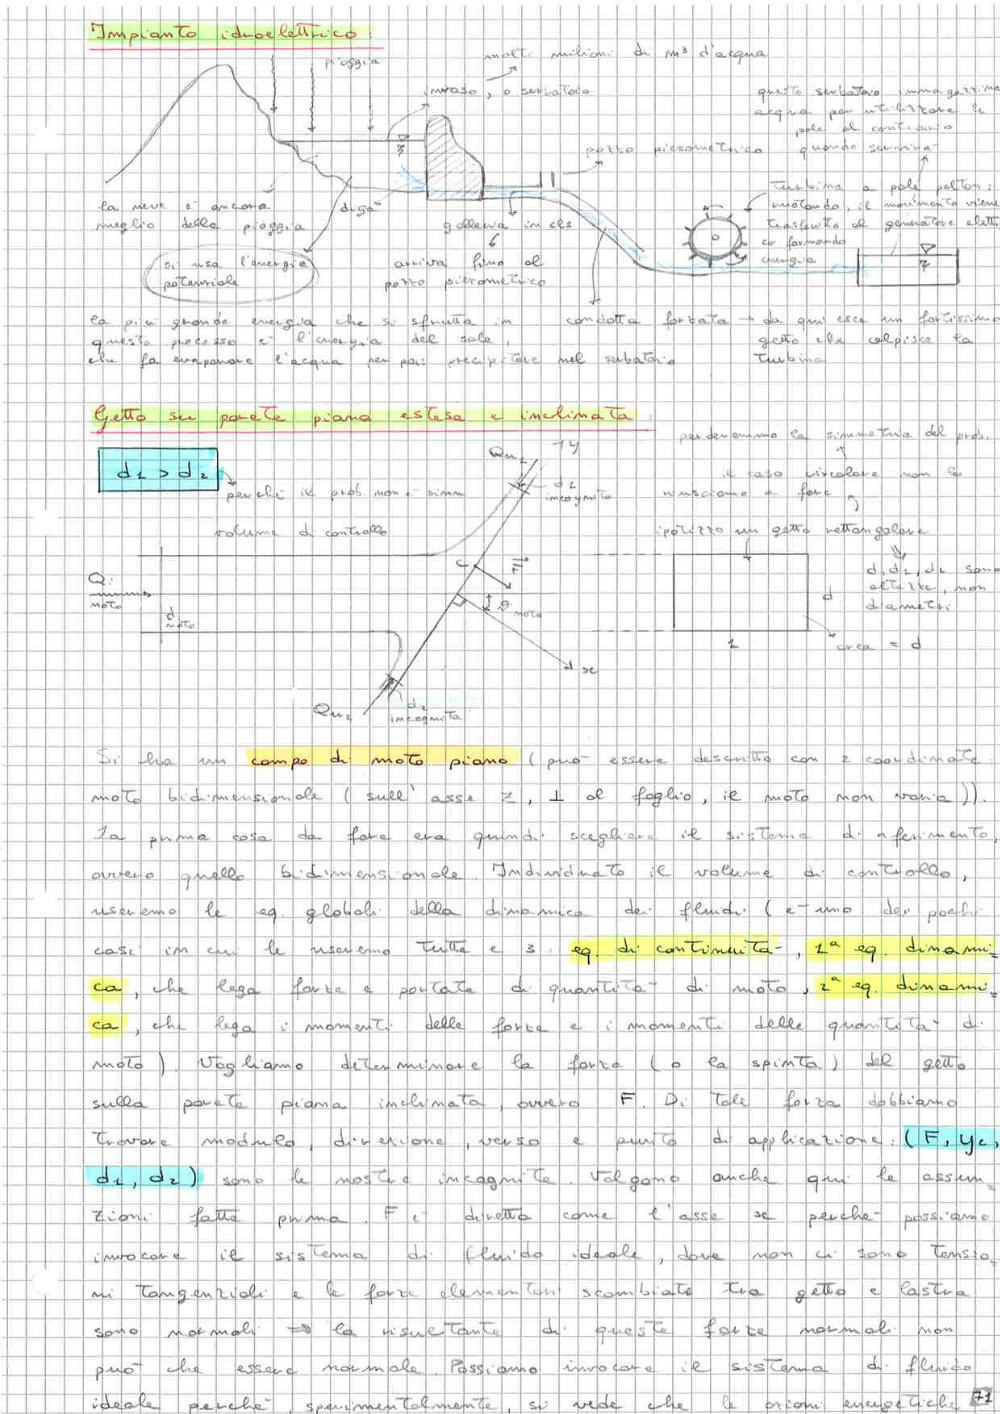 Impianto idroelettrico:
pioggia
molti milioni di m³ d'acqua
invaso, o serbatoio
questo serbatoio immagazzina
acqua per utilizzare le
pale al contrario
quando servirà
pozzo piezometrico
la neve è ancora
meglio della pioggia
diga
galleria in cls
arriva fino al
pozzo piezometrico
si usa l'energia
potenziale
turbina a pale pelton:
ruotando, il movimento viene
trasferito al generatore elettri
co formando
energia
la più grande energia che si sfrutta in
questo processo è l'energia del sole,
che fa evaporare l'acqua per poi precipitare nel serbatoio
condotta forzata → da qui esce un fortissimo
getto che colpisce la
turbina
Getto su parete piana estesa e inclinata:
d1 > d2
perché il prob. non è simm
volume di controllo
Qu1
y
d1
incognito
perderemmo la simmetria del prob.
il caso circolare non lo
riusciamo a fare
ipotizzo un getto rettangolare
d, d1, d2 sono
altezze, non
diametri
Qi
moto
d
noto
C
F
θ noto
x
d
1
area = d
Qu2
d2
incognita
Si ha un campo di moto piano (può essere descritto con 2 coordinate:
moto bidimensionale (sull'asse z, ⊥ al foglio, il moto non varia)).
La prima cosa da fare era quindi scegliere il sistema di riferimento,
ovvero quello bidimensionale. Individuato il volume di controllo,
useremo le eq. globali della dinamica dei fluidi (è uno dei pochi
casi in cui le useremo tutte e 3: eq. di continuità, 1ª eq. dinami=
ca, che lega forze e portate di quantità di moto, 2ª eq. dinami=
ca, che lega i momenti delle forze e i momenti delle quantità di
moto) Vogliamo determinare la forza (o la spinta) del getto
sulla parete piana inclinata, ovvero F. Di tale forza dobbiamo
trovare modulo, direzione, verso e punto di applicazione: (F, yc,
d1, d2) sono le nostre incognite. Valgono anche qui le assun
zioni fatte prima. F è diretta come l'asse x perché possiamo
invocare il sistema di fluido ideale, dove non ci sono tensio
ni tangenziali e le forze elementari scambiate tra getto e lastra
sono normali ⇒ la risultante di queste forze normali non
può che essere normale. Possiamo invocare il sistema di fluido
ideale perché sperimentalmente, si vede che le azioni energetiche
71